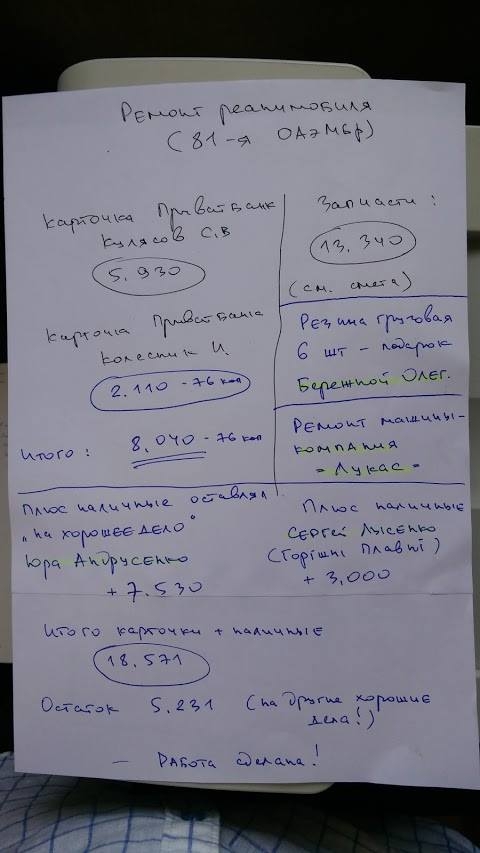 Ремонт реанимобиля
(81-я ОАЭМБр)
Карточка ПриватБанк
Кулясов С.В
5.930
Карточка ПриватБанка
Колесник И.
2.110-76 коп
Итого: 8,040-76 коп
Запчасти:
13.340
(см. смета)
Резина грузовая
6 шт - подарок
Бережной Олег.
Ремонт машины-
компания
"Лукас"
Плюс наличные оставлял
"на хорошее дело"
Юра Андрусенко
+ 7.530
Плюс наличные
Сергей Лысенко
(Горішні Плавні)
+ 3,000
Итого карточки + наличные
18,571
Остаток 5.231 (на другие хорошие
дела!)
— Работа сделана!